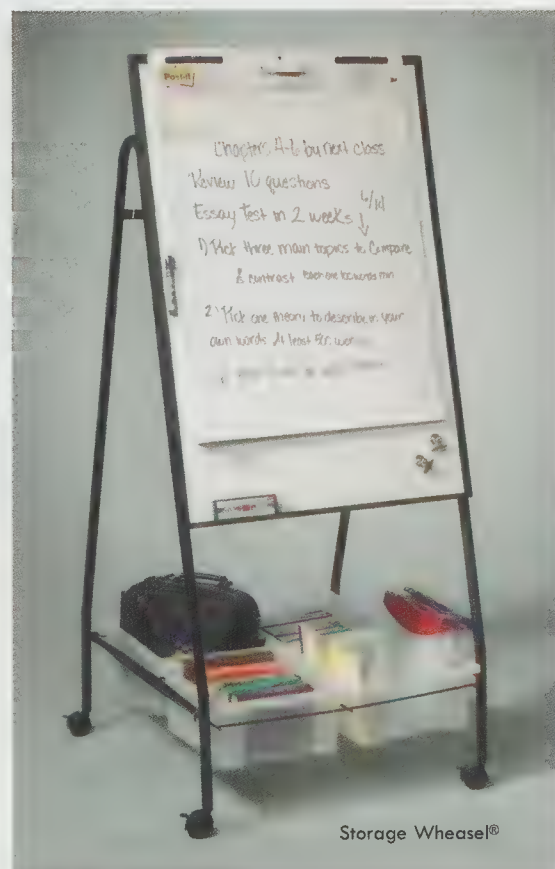 Post-it
Chapters 4-6 by next class
Review 10 questions
Essay Test in 2 weeks
1) Pick three main topics to Compare
& contrast each one words min
2) Pick one theory to describe in your
own words At least
Storage Wheasel®